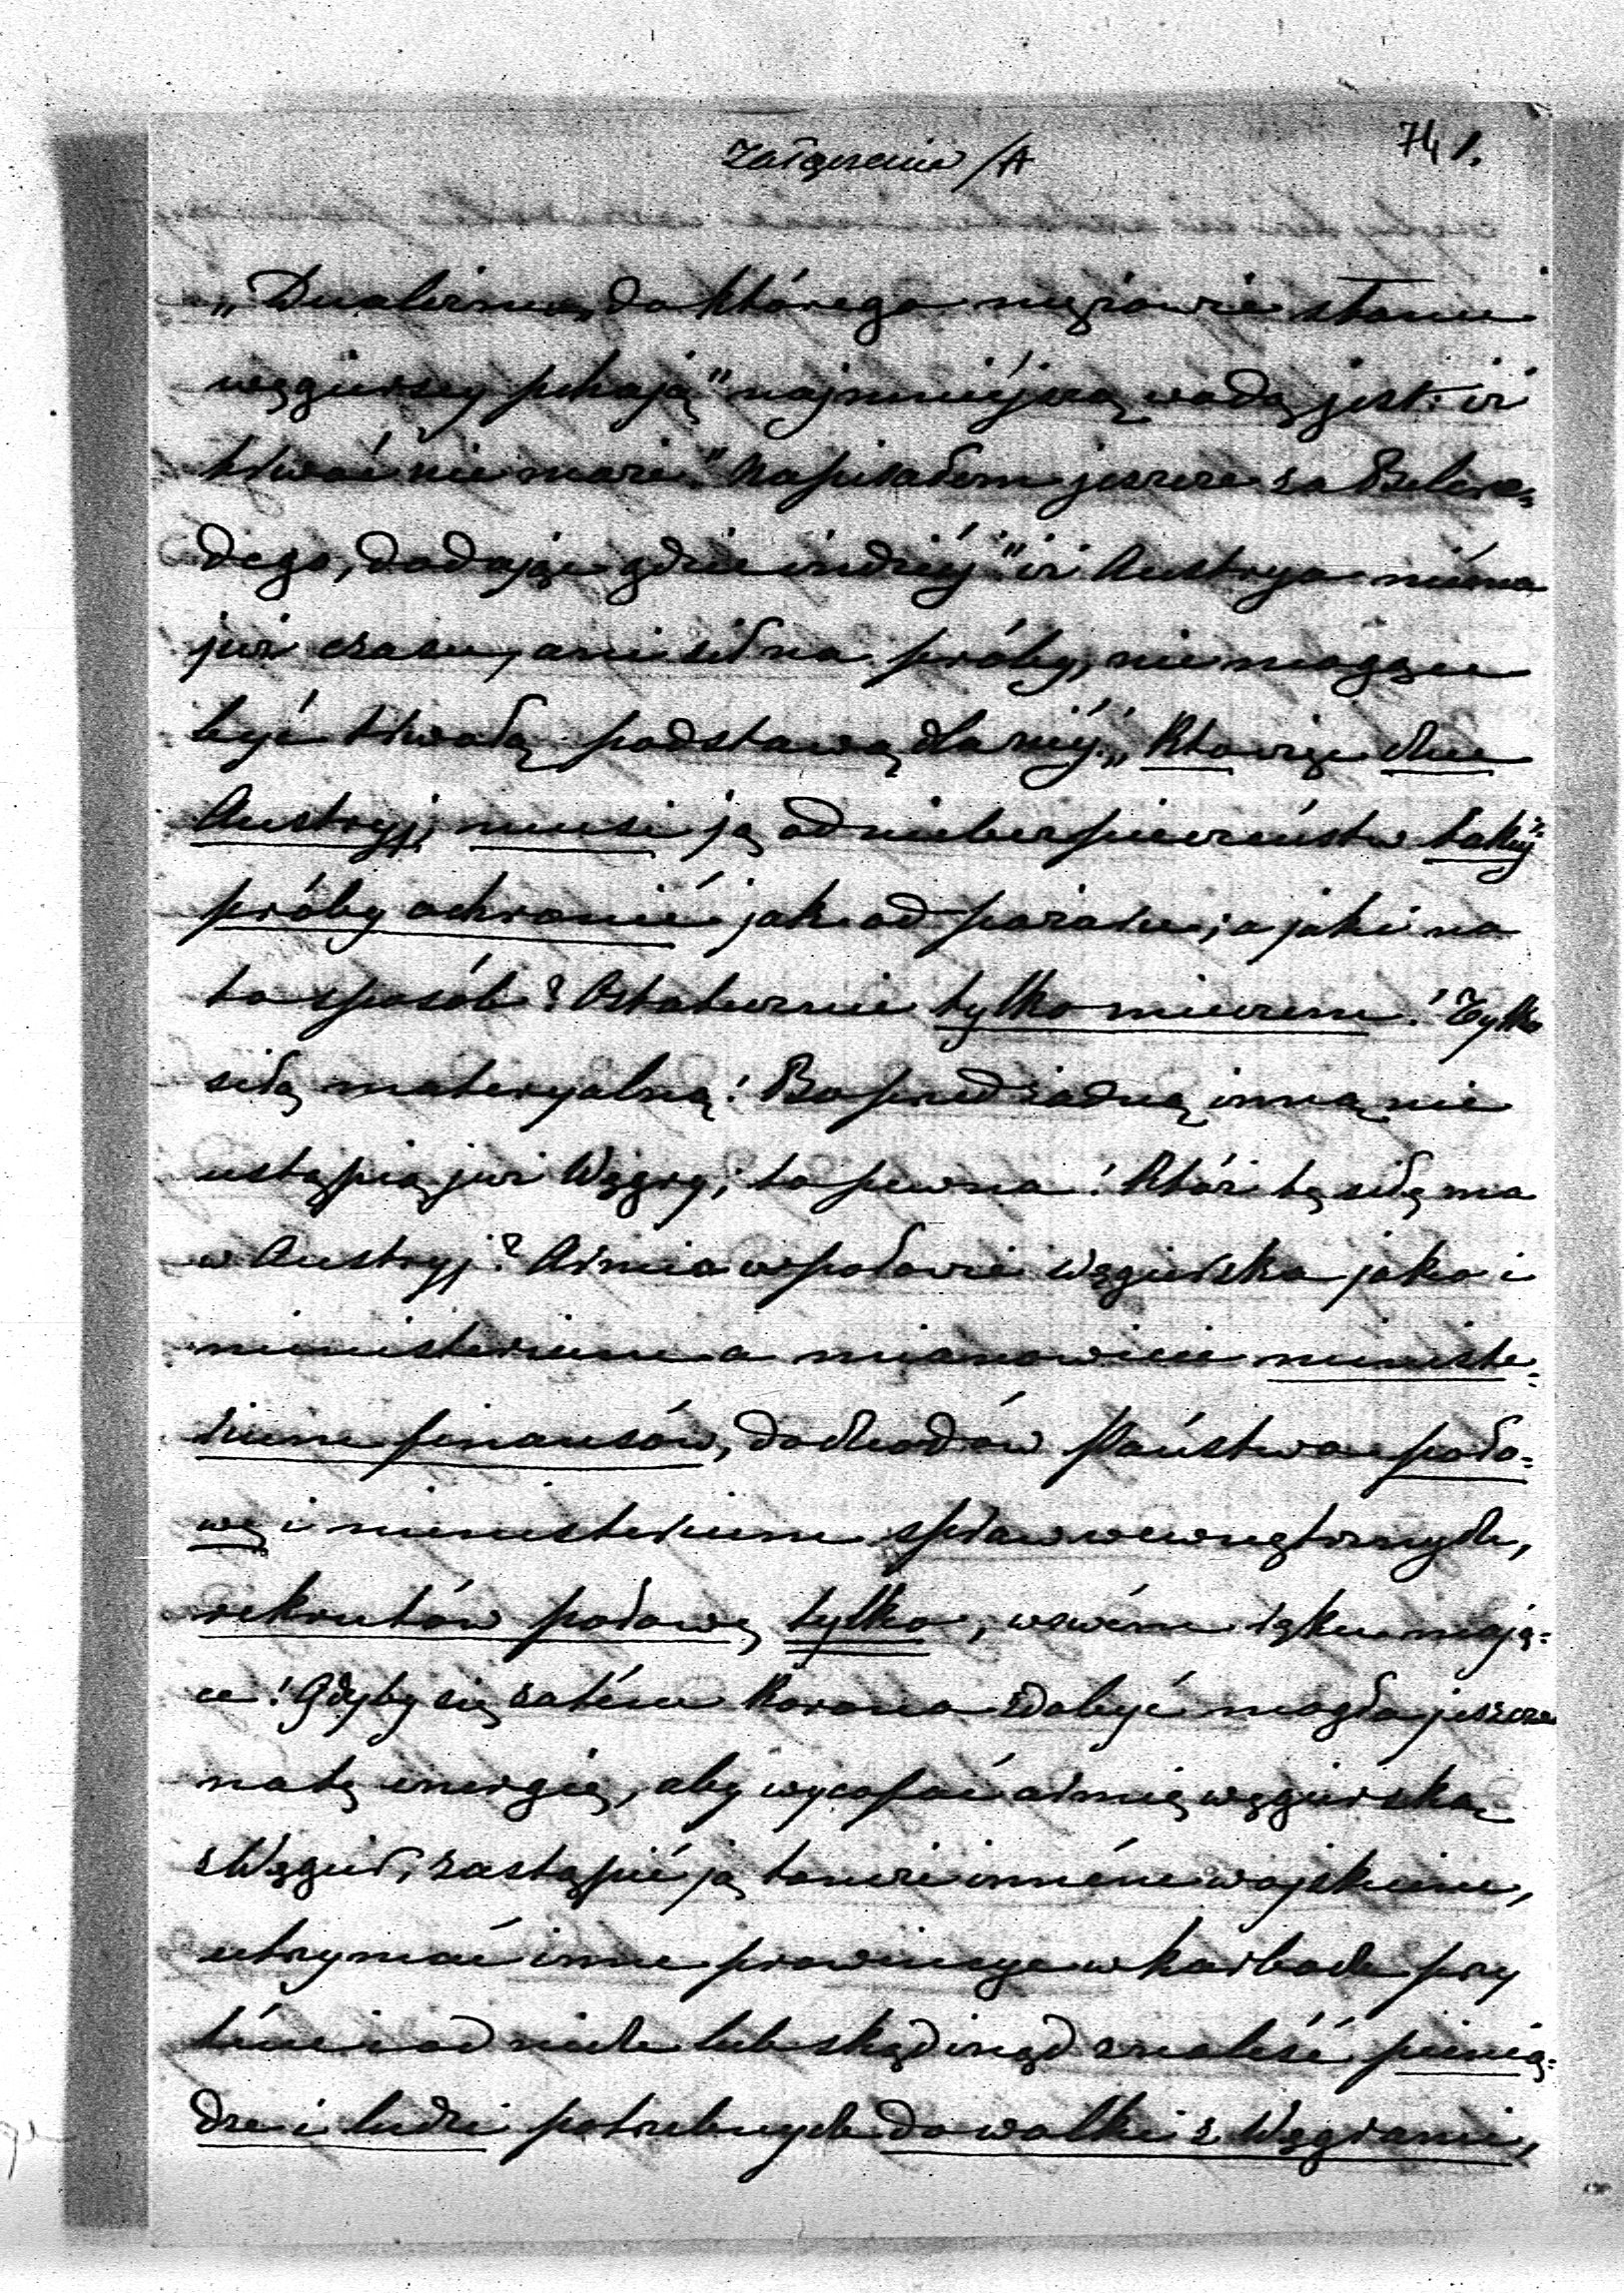 74 1.
Załączenie /A
„Dualizmu, do którego mężowie stanu
węgierscy pchają" najmniéjszą wadą jest: iż
trwać nie może." Napisałem jeszcze za Belcre=
dego, dodając gdzieindziéj „iż Austrya niéma
już czasu, ani sił na próby, nie mogące
być trwałą podstawą dla niéj." Kto więc chce
Austryj, musi ją od niebezpieczeństw takiéj
próby ochronić jak od pożaru; a jakiż na
to sposób? Ostatecznie tylko mieczem! Tylko
siłą materyalną! Bo przed żadną inną nie
ustąpią już Węgry; to pewna! Któż tę siłę ma
w Austryj? Armia w połowie węgierska jako i
ministerium a mianowicie ministe=
rium finansów, dochodów Państwa poło=
wę i ministerium spraw wewnętrznych,
rekrutów połowę tylko, w swém ręku mają=
ce! Gdyby się zatém Korona zdobyć mogła jeszcze
na tę energię, aby wycofać armię węgierską
z Węgier, zastąpić ją tamże inném wojskiem,
utrzymać inne prowincye w karbach przy
tém i od nich lub skądinąd znaleść pienią=
dze i ludzi potrzebnych do walki z Węgrami,